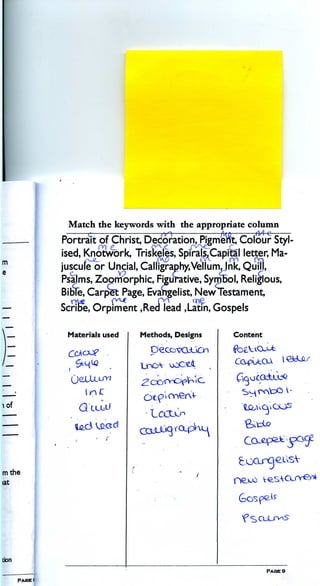 Match the keywords with the appropriate column
Portrait of Christ, Decoration, Pigment, Colour Styl-
ised, Knotwork, Triskeles, Spirals, Capital letter, Ma-
juscule or Uncial, Calligraphy, Vellum, Ink, Quill,
Psalms, Zoomorphic, Figurative, Symbol, Religious,
Bible, Carpet Page, Evangelist, New Testament,
Scribe, Orpiment, Red lead, Latin, Gospels
Materials used Methods, Designs Content
Decoration
Style Capital letter
Vellum Zoomorphic figurative
Ink Orpiment Symbol.
Quill Latin Religious
Red lead Calligraphy Bible
Carpet page
Evangelist
new testament
Gospels
Psalms
PAGE 9
m
e
of
m the
at
tion
PAGE